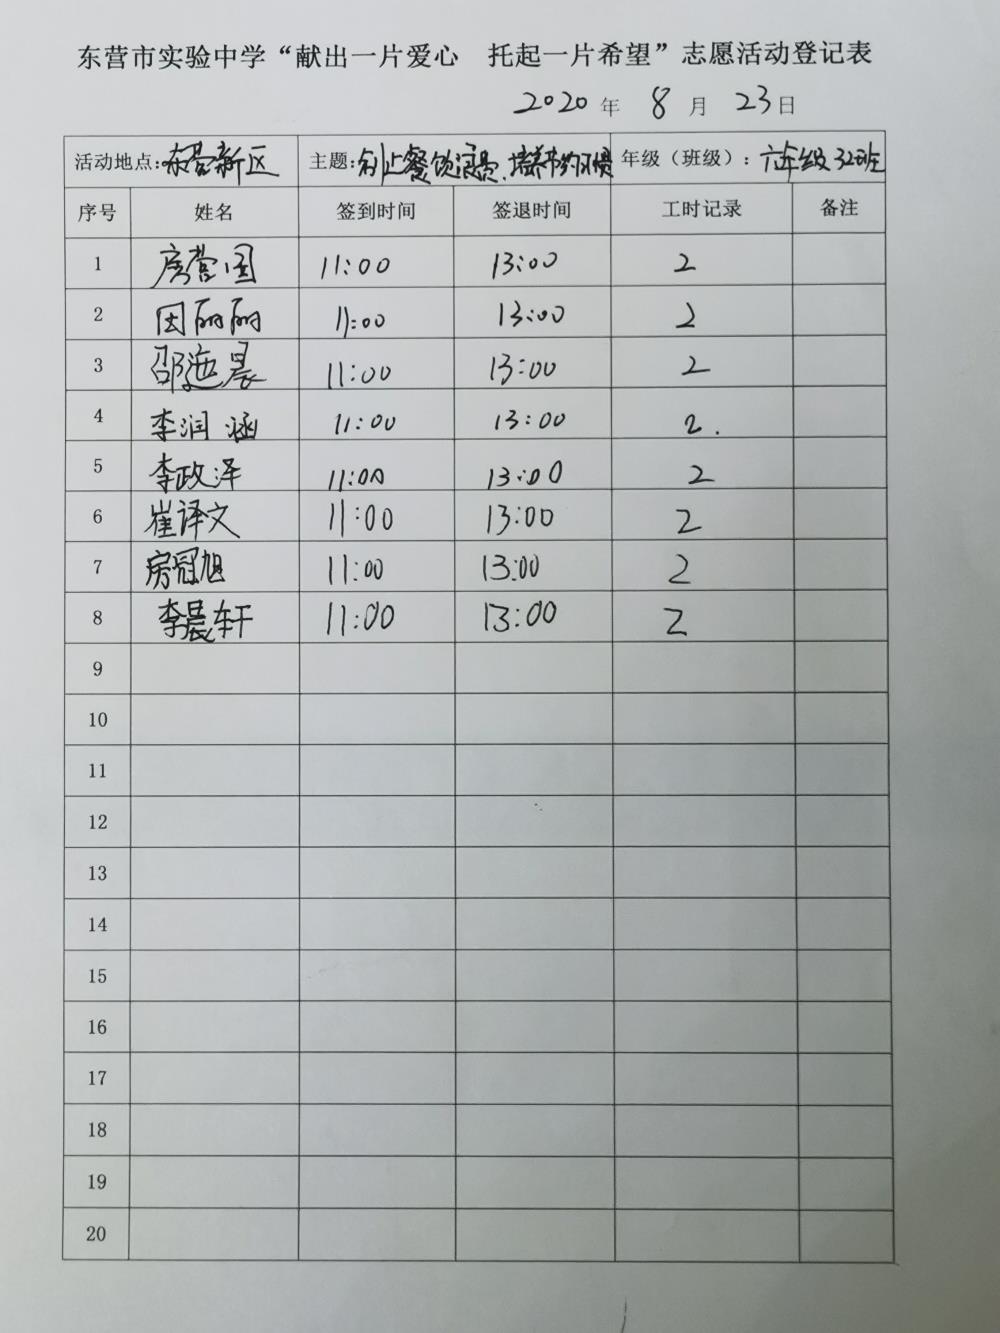 东营市实验中学“献出一片爱心 托起一片希望”志愿活动登记表
2020 年 8 月 23 日
活动地点:东营新区 主题:制止餐饮浪费、培养节约习惯 年级（班级）: 六年级32班
序号 姓名 签到时间 签退时间 工时记录 备注
1 房营国 11:00 13:00 2
2 田丽丽 11:00 13:00 2
3 邵逸晨 11:00 13:00 2
4 李润涵 11:00 13:00 2.
5 李政泽 11:00 13:00 2
6 崔译文 11:00 13:00 2
7 房冠旭 11:00 13:00 2
8 李晨轩 11:00 13:00 2
9
10
11
12
13
14
15
16
17
18
19
20